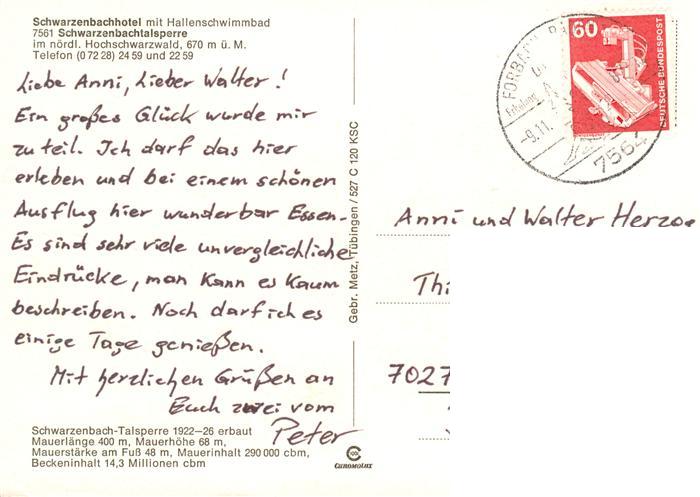 Schwarzenbachhotel mit Hallenschwimmbad
7561 Schwarzenbachtalsperre
im nördl. Hochschwarzwald, 670 m ü. M.
Telefon (0 72 28) 24 59 und 22 59
Liebe Anni, Lieber Walter!
Ein großes Glück wurde mir
zu teil. Ich darf das hier
erleben und bei einem schönen
Ausflug hier wunderbar Essen.
Es sind sehr viele unvergleichliche
Eindrücke, man kann es kaum
beschreiben. Noch darf ich es
einige Tage genießen.
Mit herzlichen Grüßen an
Euch zwei vom
Peter
Schwarzenbach-Talsperre 1922–26 erbaut
Mauerlänge 400 m, Mauerhöhe 68 m,
Mauerstärke am Fuß 48 m, Mauerinhalt 290 000 cbm,
Beckeninhalt 14,3 Millionen cbm
Gebr. Metz, Tübingen / 527 C 120 KSC
CHROMOLUX
60
DEUTSCHE BUNDESPOST
FORBACH
-9.11.
7564
Anni und Walter Herzog
Thi
7027